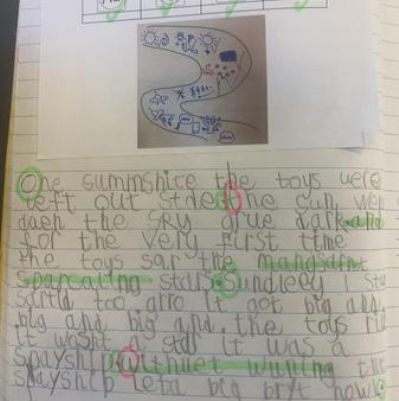 One summshice the toys were
left out stde the sun wen
daen the sky grue dark and
for the very first time
the toys sar the
sparcaling stars Sundleey 1 sta
sartid too gro it got big and
big and big and. the toys
it wasnt a star it was a
spayship withuet wining the
spayship leta big bryt howl